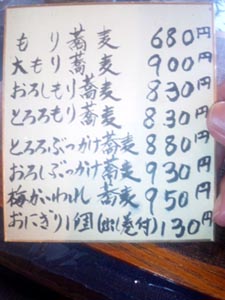 もり蕎麦 680円
大もり蕎麦 900円
おろしもり蕎麦 830円
とろろもり蕎麦 830円
とろろぶっかけ蕎麦 880円
おろしぶっかけ蕎麦 930円
梅かいわれ蕎麦 950円
おにぎり1個(出し巻付)130円